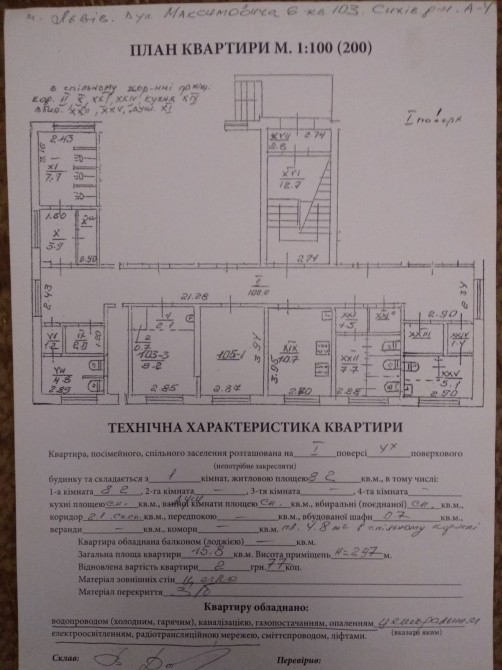 м. Львів. вул. Максимовича 6 кв 103. Сихів р-н. А-4
ПЛАН КВАРТИРИ М. 1:100 (200)
в спільному кор-нні
кор. II, X, XXI, XXIV, кухня XIX
I поверх
2.43
3.16
XI
7.7
1.60
X
5.9
2.90
XVII
2.8
2.74
XVI
12.7
2.74
I
100.0
21.28
2.43
2.34
1
2.1
2
0.7
103-3
8-2
2.85
105-1
2.87
3.94
XIX
10.7
3.95
2.80
XX
1.5
XXII
7.7
2.88
2.90
XXIII
XXV
5.1
2.90
VII
4.8
2.89
ТЕХНІЧНА ХАРАКТЕРИСТИКА КВАРТИРИ
Квартира, посімейного, спільного заселення розташована на I поверсі 4х поверхового
(непотрібне закреслити)
будинку та складається з 1 кімнат, житловою площею 8.2 кв.м., в тому числі:
1-а кімната 8.2, 2-га кімната —, 3-тя кімната —, 4-та кімната —
кухні площею сп. кв.м., ванної кімнати площею сп. кв.м., вбиральні (поєднаної) сп. кв.м.,
коридор 2.1 кв.м., передпокою — кв.м., вбудованої шафи 0.7 кв.м.,
веранди — кв.м., комори — кв.м. пл. 4.8 в спільному
Квартира обладнана балконом (лоджією) — кв.м.
Загальна площа квартири 15.8 кв.м. Висота приміщень H=2.97 м.
Відновлена вартість квартири 2 грн. 77 коп.
Матеріал зовнішніх стін цегла
Матеріал перекриття З/б
Квартиру обладнано:
водопроводом (холодним, гарячим), каналізацією, газопостачанням, опаленням центральним
(вказати яким)
електроосвітленням, радіотрансляційною мережею, сміттєпроводом, ліфтами.
Склав: Перевірив: